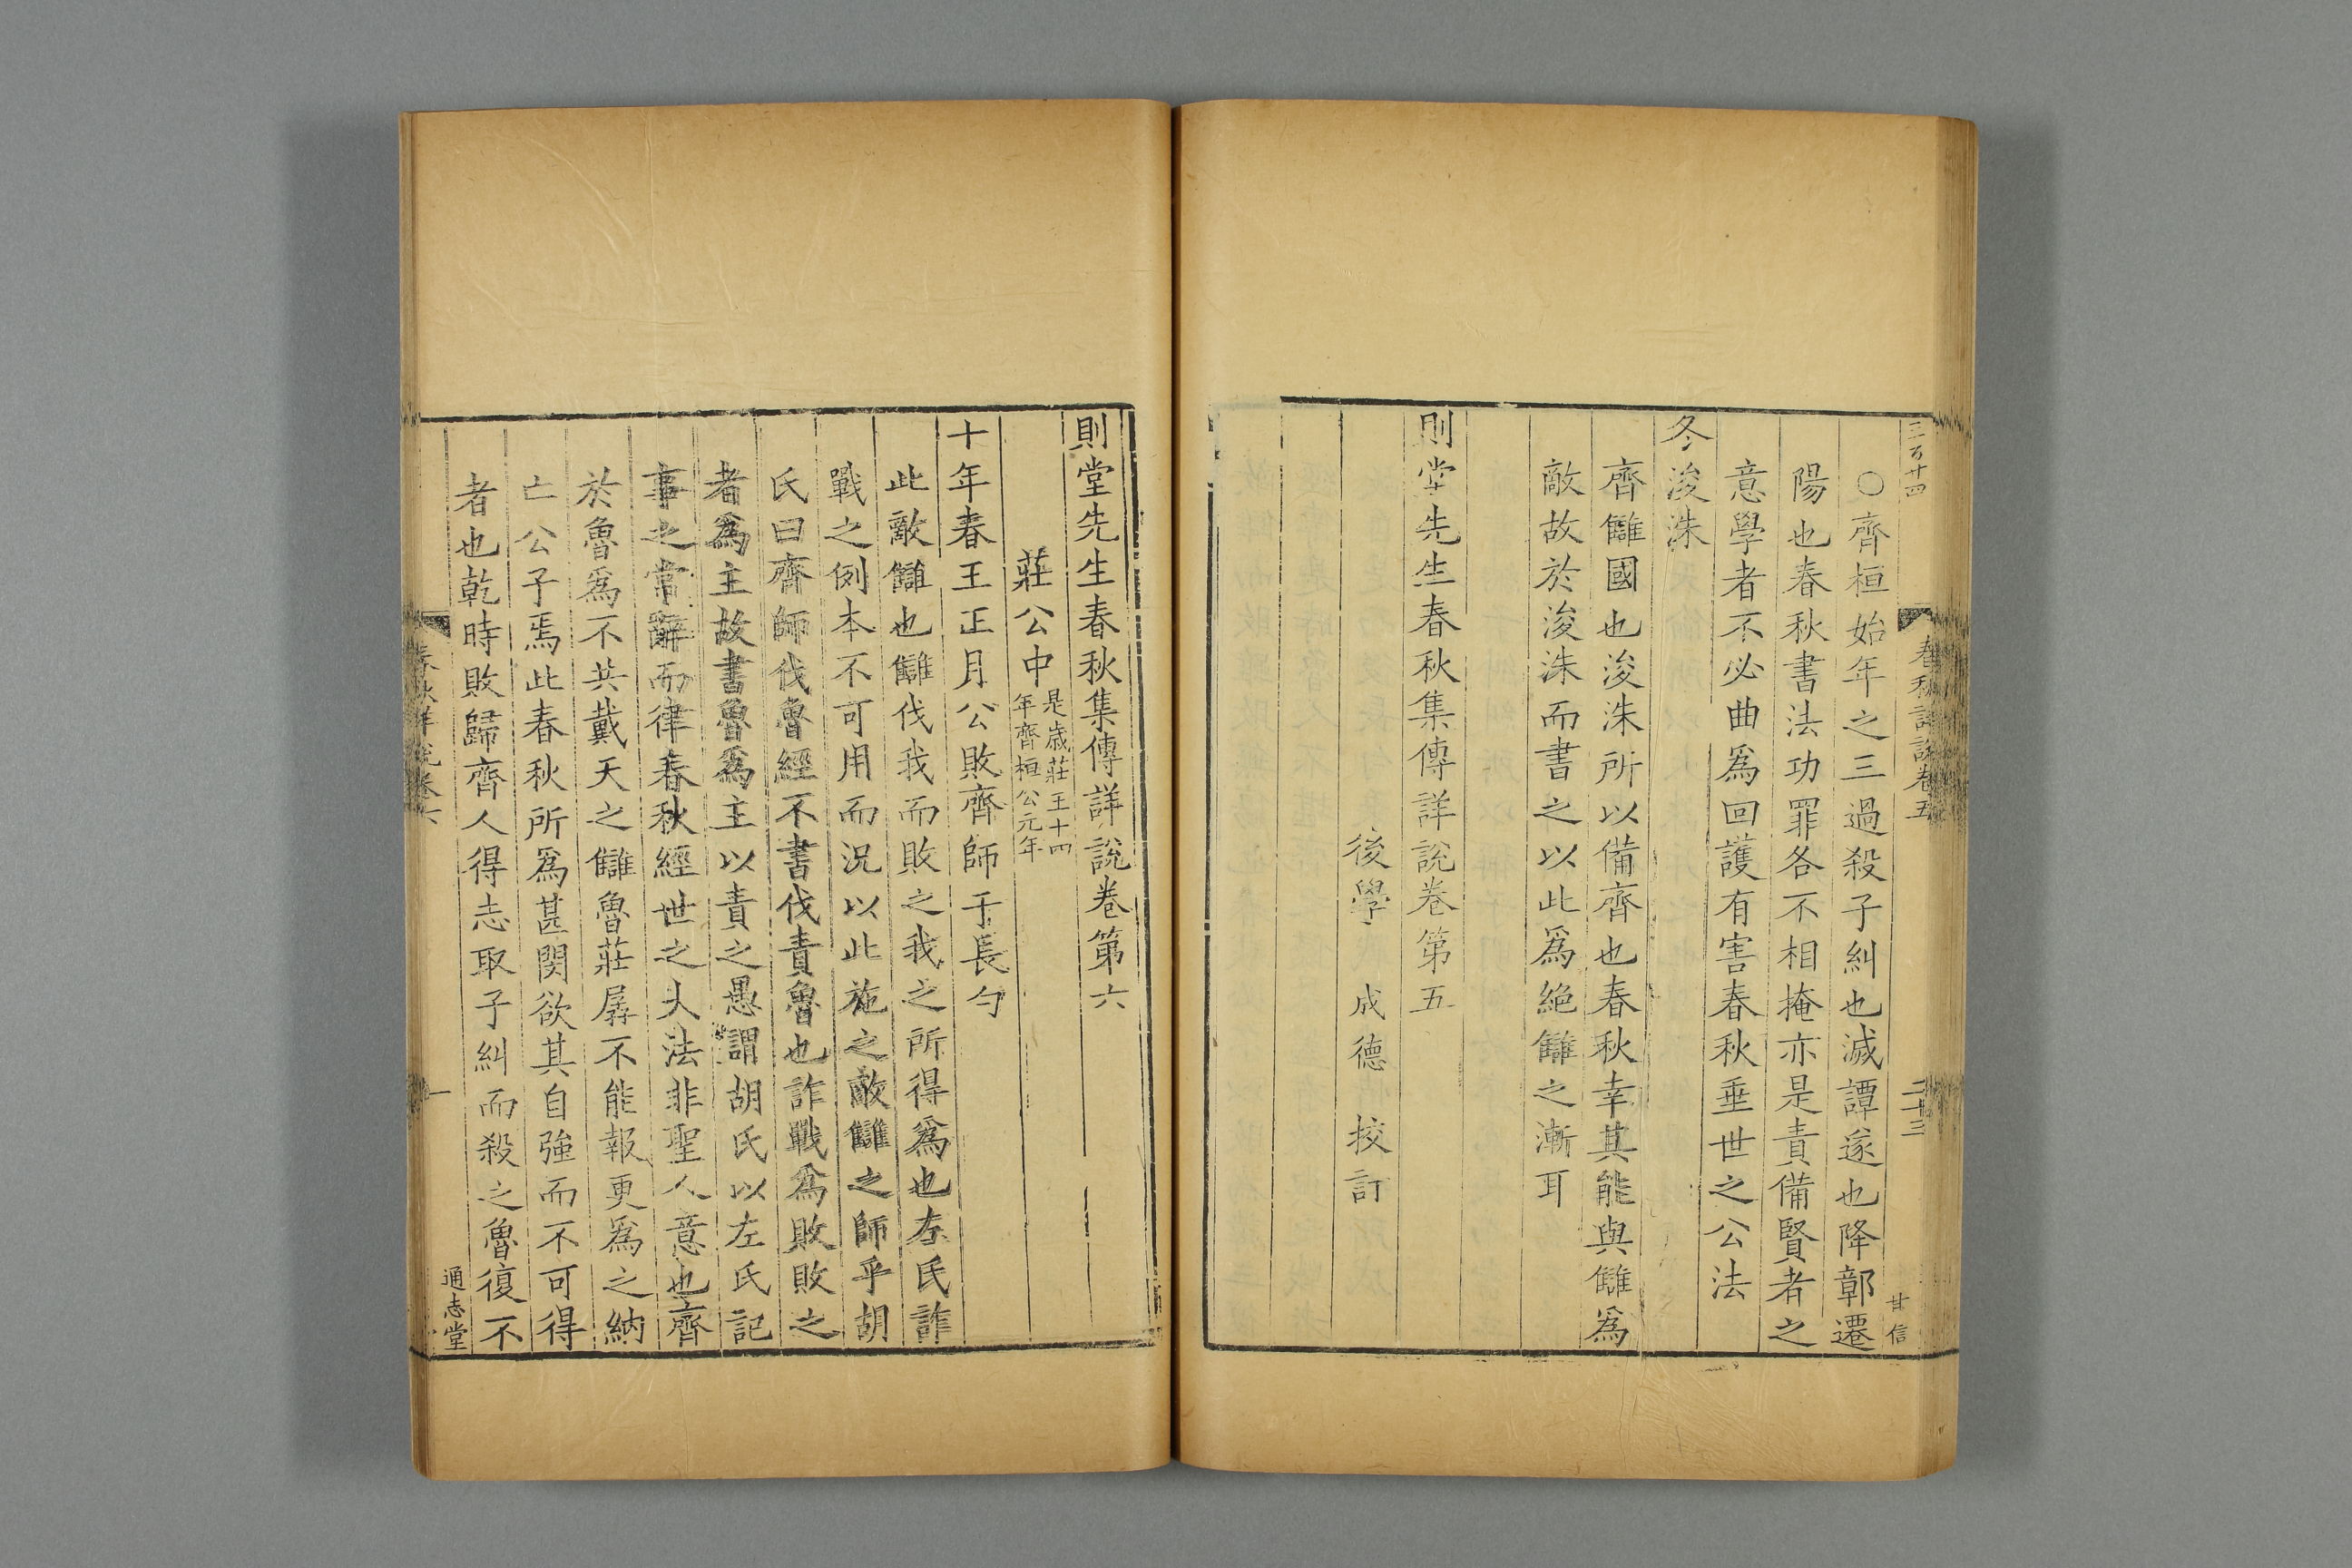 三百十四
春秋詳說卷五
二十三
甘信
○齊桓始年之三過殺子糾也滅譚遂也降鄣遷
陽也春秋書法功罪各不相掩亦是責備賢者之
意學者不必曲爲回護有害春秋垂世之公法
冬浚洙
齊讎國也浚洙所以備齊也春秋幸其能與讎爲
敵故於浚洙而書之以此爲絶讎之漸耳
則堂先生春秋集傳詳說卷第五
後學 成德 挍訂
則堂先生春秋集傳詳說卷第六
莊公中是歲莊王十四
年齊桓公元年
十年春王正月公敗齊師于長勺
此敵讎也讎伐我而敗之我之所得爲也左氏詐
戰之例本不可用而況以此施之敵讎之師乎胡
氏曰齊師伐魯經不書伐責魯也詐戰爲敗敗之
者爲主故書魯爲主以責之愚謂胡氏以左氏記
事之常辭而律春秋經世之大法非聖人意也齊
於魯爲不共戴天之讎魯莊孱不能報更爲之納
亡公子焉此春秋所爲甚閔欲其自強而不可得
者也乾時敗歸齊人得志取子糾而殺之魯復不
春秋詳說卷六
一
通志堂